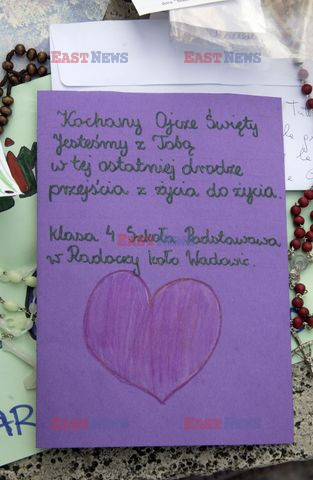 EASTNEWS
Kochany Ojcze Święty
Jesteśmy z Tobą
w tej ostatniej drodze
przejścia z życia do życia.
Klasa 4 Szkoła Podstawowa
w Radoczy koło Wadowic.
EASTNEWS
EASTNEWS
EASTNEWS
EASTNEWS
AR